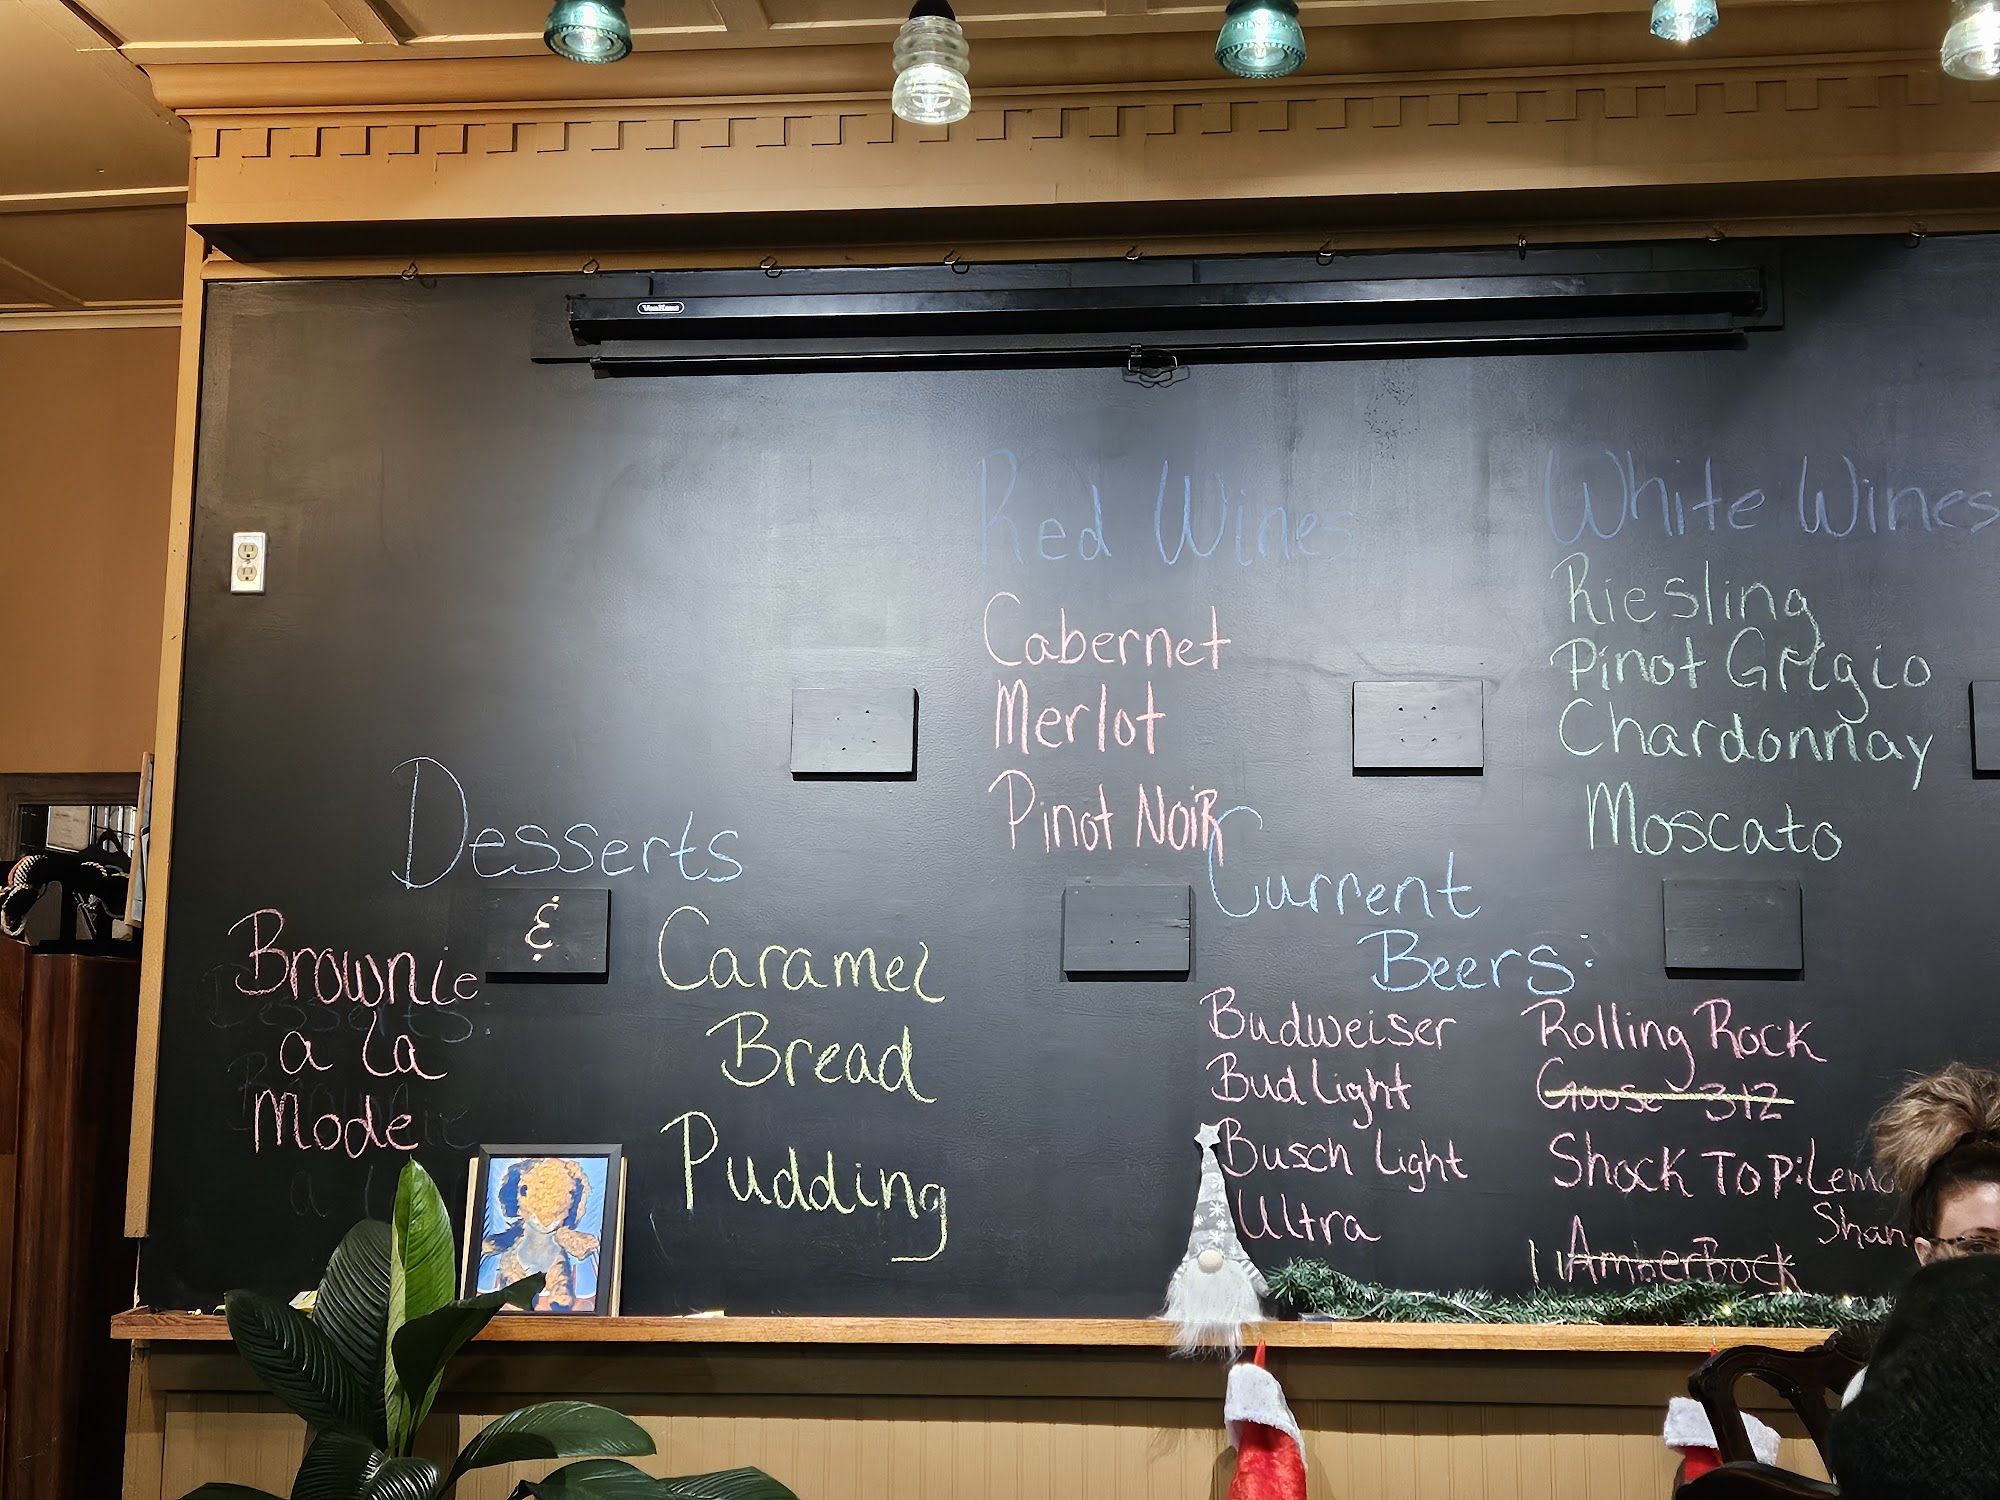 Red Wines
Cabernet
Merlot
Pinot NoiR
White Wines
Riesling
Pinot Grigio
Chardonnay
Moscato
Desserts
Brownie
a la
Mode
&
Caramel
Bread
Pudding
Current
Beers:
Budweiser
Bud Light
Busch Light
Ultra
Rolling Rock
Goose 312
Shock Top: Lemo
Shan
AmberBock
Desserts:
Brownie
a l